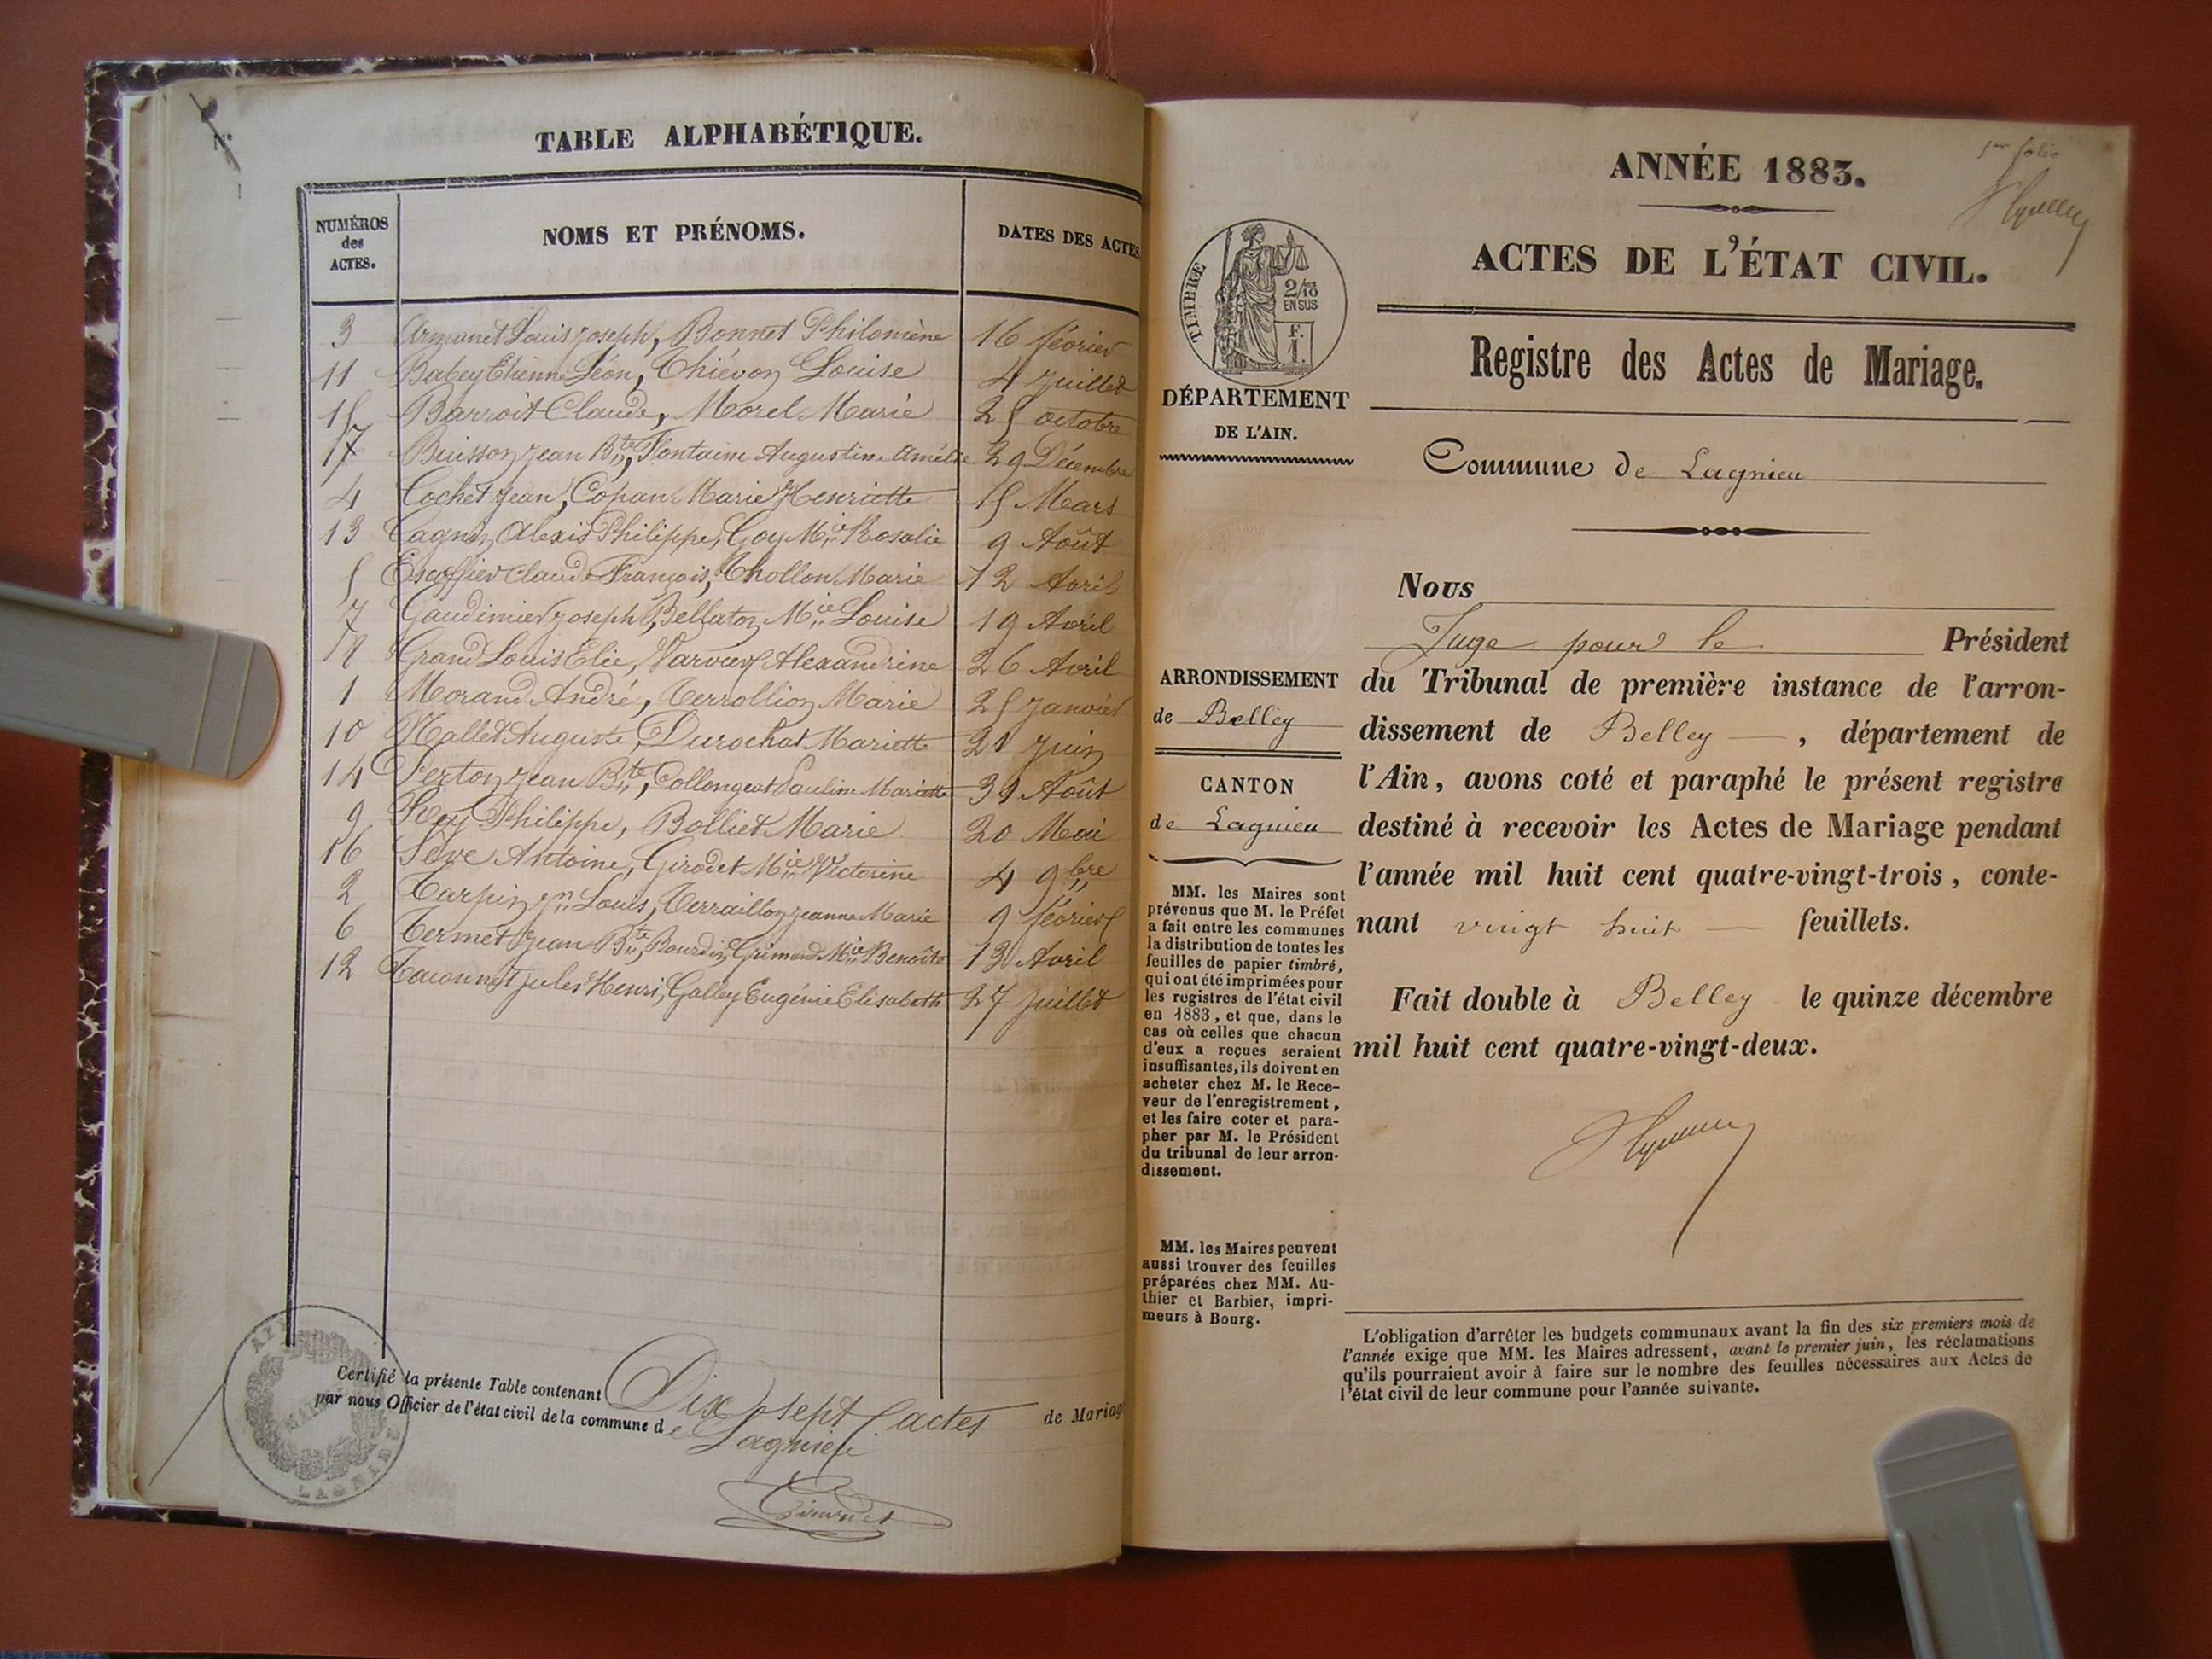 TABLE ALPHABÉTIQUE.
NUMÉROS des ACTES.
NOMS ET PRÉNOMS.
DATES DES ACTES
3 Armanet Louis Joseph, Bonnet Philomène 16 février
11 Babey Etienne Léon, Thiévon Louise 4 Juillet
15 Barroit Claude, Morel Marie 25 octobre
17 Buisson Jean Bte, Fontaine Augustine Amélie 29 Décembre
4 Cochet Jean, Copan Marie Henriette 15 Mars
13 Cagnin Alexis Philippe, Goy Mie Rosalie 9 Août
5 Escoffier Claude François, Chollon Marie 12 Avril
7 Gaudimier Joseph, Bellaton Mie Louise 19 Avril
8 Grand Louis Elie, Alexandrine 26 Avril
1 Morand André, Terrollion Marie 25 Janvier
10 Mallet Auguste, Durochat Mariette 21 Juin
14 Perton Jean Bte, Collongeat Pauline Mariette 31 Août
9 Rey Philippe, Bolliet Marie 20 Mai
16 Sève Antoine, Girodet Mie Victorine 4 9bre
2 Tarpin Jn Louis, Terraillon Jeanne Marie 9 février
6 Termet Jean Bte, Bourdin Grimand Mie Benoîte 12 Avril
12 Jules Henri, Galley Eugénie Elisabeth 27 Juillet
Certifié la présente Table contenant Dix sept actes de Mariag
par nous Officier de l'état civil de la commune de Lagnieu
Girardet
LAGNIEU
1er folio
ANNÉE 1883.
ACTES DE L'ÉTAT CIVIL.
TIMBRE
2/10
EN SUS
F.
1.
Registre des Actes de Mariage.
DÉPARTEMENT
DE L'AIN.
Commune de Lagnieu
ARRONDISSEMENT
de Belley
CANTON
de Lagnieu
MM. les Maires sont
prévenus que M. le Préfet
a fait entre les communes
la distribution de toutes les
feuilles de papier timbré,
qui ont été imprimées pour
les registres de l'état civil
en 1883, et que, dans le
cas où celles que chacun
d'eux a reçues seraient
insuffisantes, ils doivent en
acheter chez M. le Rece-
veur de l'enregistrement,
et les faire coter et para-
pher par M. le Président
du tribunal de leur arron-
dissement.
MM. les Maires peuvent
aussi trouver des feuilles
préparées chez MM. Au-
thier et Barbier, impri-
meurs à Bourg.
Nous
Juge pour le Président
du Tribunal de première instance de l'arron-
dissement de Belley, département de
l'Ain, avons coté et paraphé le présent registre
destiné à recevoir les Actes de Mariage pendant
l'année mil huit cent quatre-vingt-trois, conte-
nant vingt huit feuillets.
Fait double à Belley le quinze décembre
mil huit cent quatre-vingt-deux.
L'obligation d'arrêter les budgets communaux avant la fin des six premiers mois de
l'année exige que MM. les Maires adressent, avant le premier juin, les réclamations
qu'ils pourraient avoir à faire sur le nombre des feuilles nécessaires aux Actes de
l'état civil de leur commune pour l'année suivante.